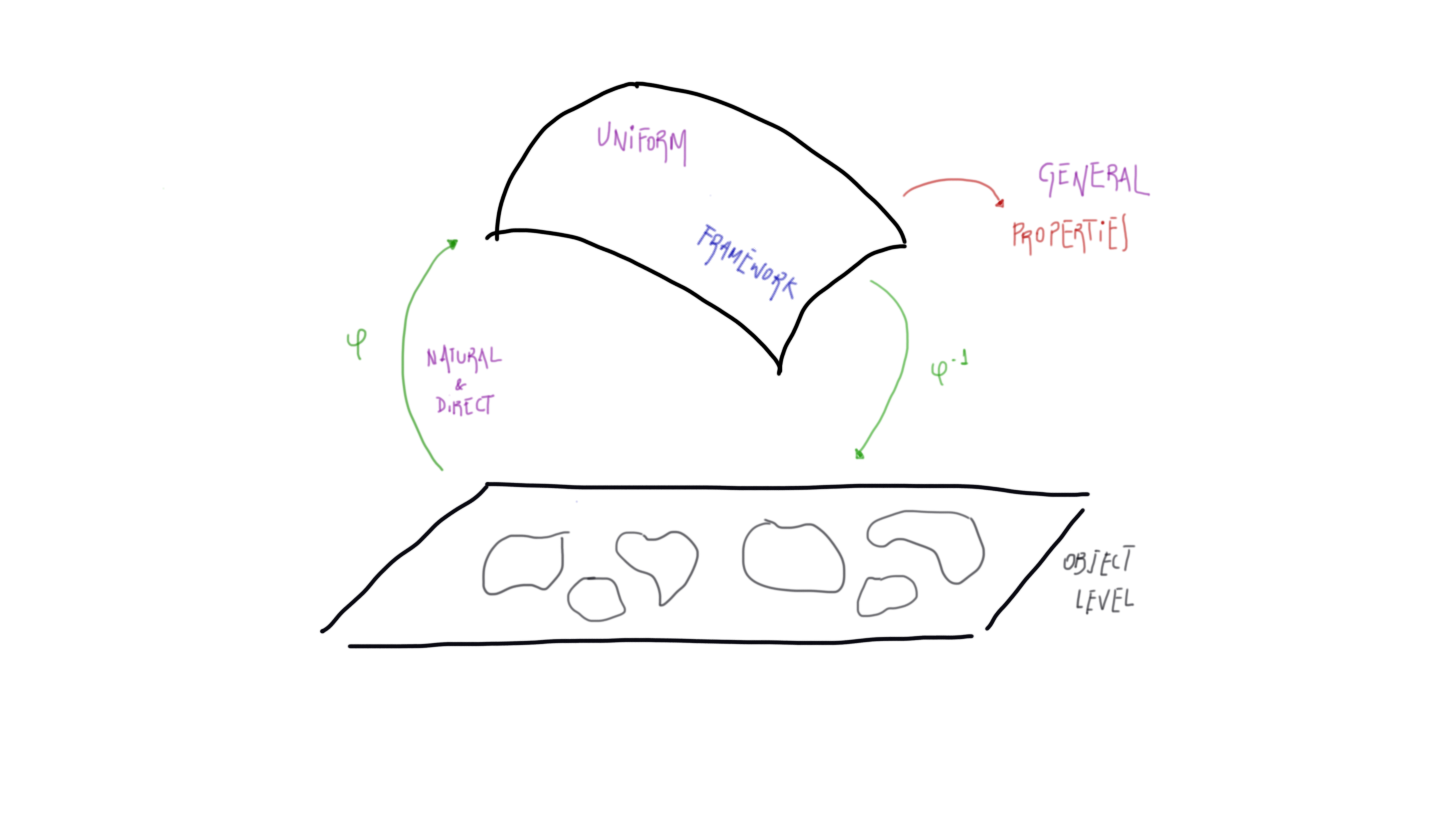 UNiFORM
FRAMEWORK
GENERAL
PROPERTiES
φ
NATURAL
&
DiRECT
φ⁻¹
OBJECT
LEVEL